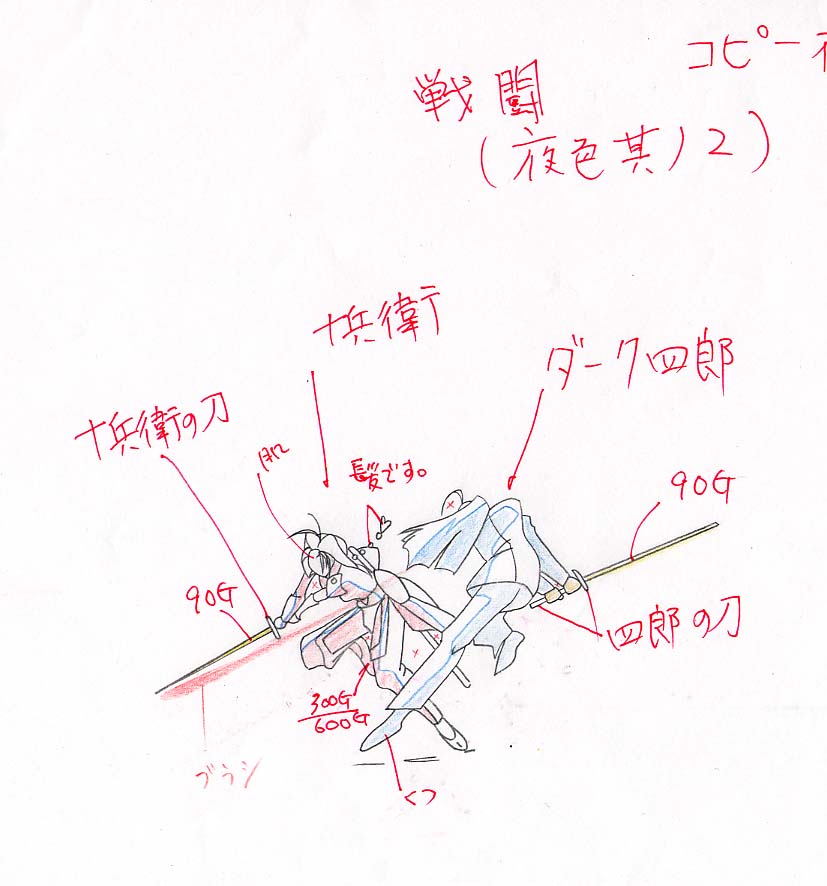 コピー
戦闘
(夜色其ノ2)
十兵衛
ダーク四郎
十兵衛の刀
髪です。
90G
90G
四郎の刀
300G
600G
ブラシ
くつ